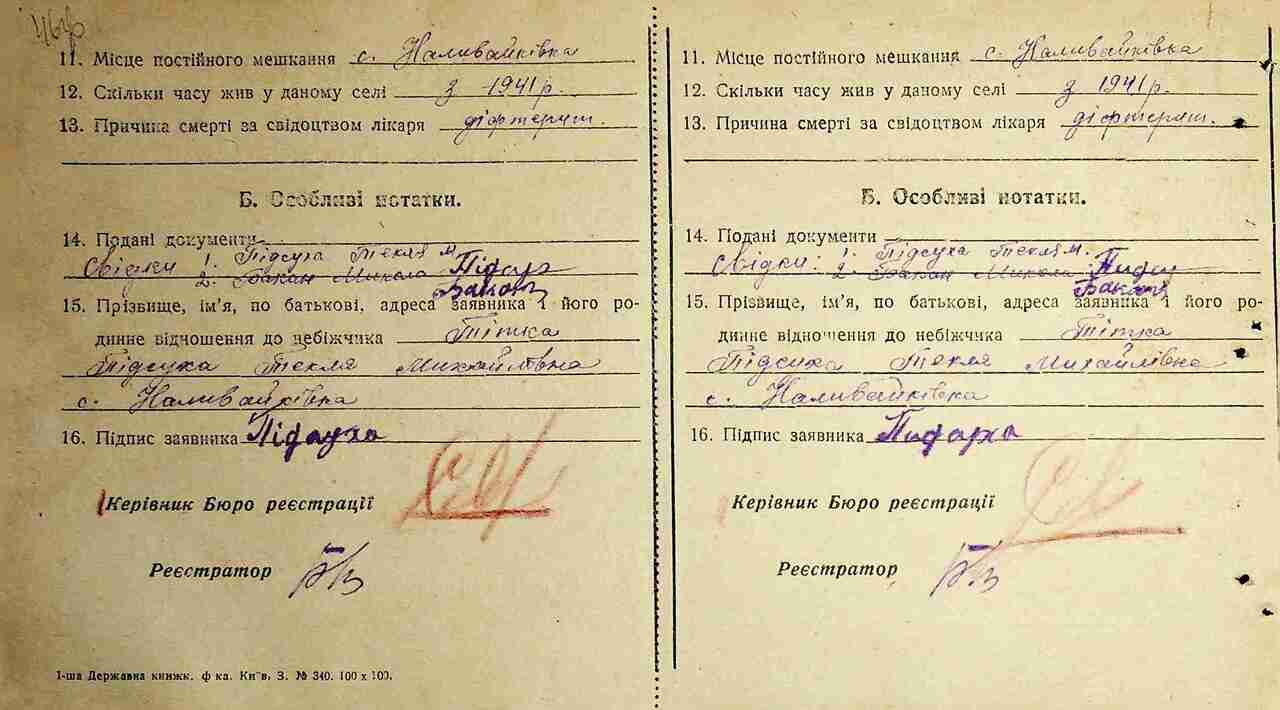 11. Місце постійного мешкання с. Наливайківка
12. Скільки часу жив у даному селі з 1941 р.
13. Причина смерті за свідоцтвом лікаря
Б. Особливі нотатки.
14. Подані документи
Свідки: 1. Підсуха Текля М.
2. Бакан Микола
15. Прізвище, ім'я, по батькові, адреса заявника і його ро-
динне відношення до небіжчика Тітка
Підсуха Текля Михайлівна
с. Наливайківка
16. Підпис заявника
Керівник Бюро реєстрації
Реєстратор
1-ша Державна книжк. ф ка. Київ, З. № 340. 100 x 100.
11. Місце постійного мешкання с. Наливайківка
12. Скільки часу жив у даному селі з 1941 р.
13. Причина смерті за свідоцтвом лікаря
Б. Особливі нотатки.
14. Подані документи
Свідки: 1. Підсуха Текля М.
2. Бакан Микола
15. Прізвище, ім'я, по батькові, адреса заявника і його ро-
динне відношення до небіжчика Тітка
Підсуха Текля Михайлівна
с. Наливайківка
16. Підпис заявника
Керівник Бюро реєстрації
Реєстратор